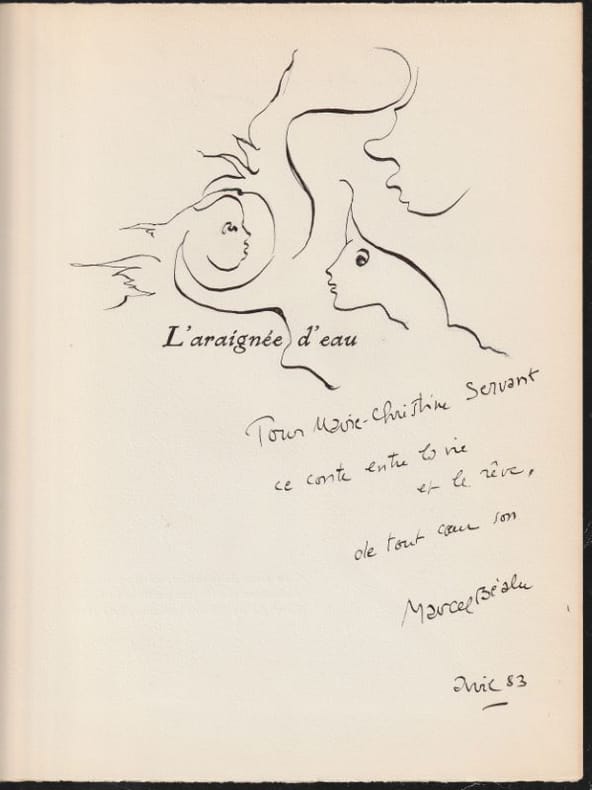 L'araignée d'eau
Pour Marie-Christine Servant
ce conte entre la vie
et le rêve,
de tout cœur son
Marcel Béalu
83